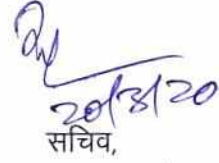 20/3/20
सचिव,